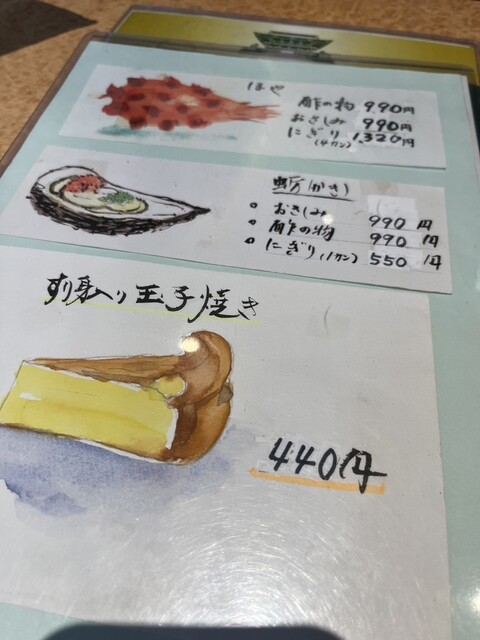 ほや
酢の物 990円
おさしみ 990円
にぎり 1,320円
(4カン)
蛎(かき)
おさしみ 990円
酢の物 990円
にぎり(1カン) 550円
すり身入り玉子焼き
440円